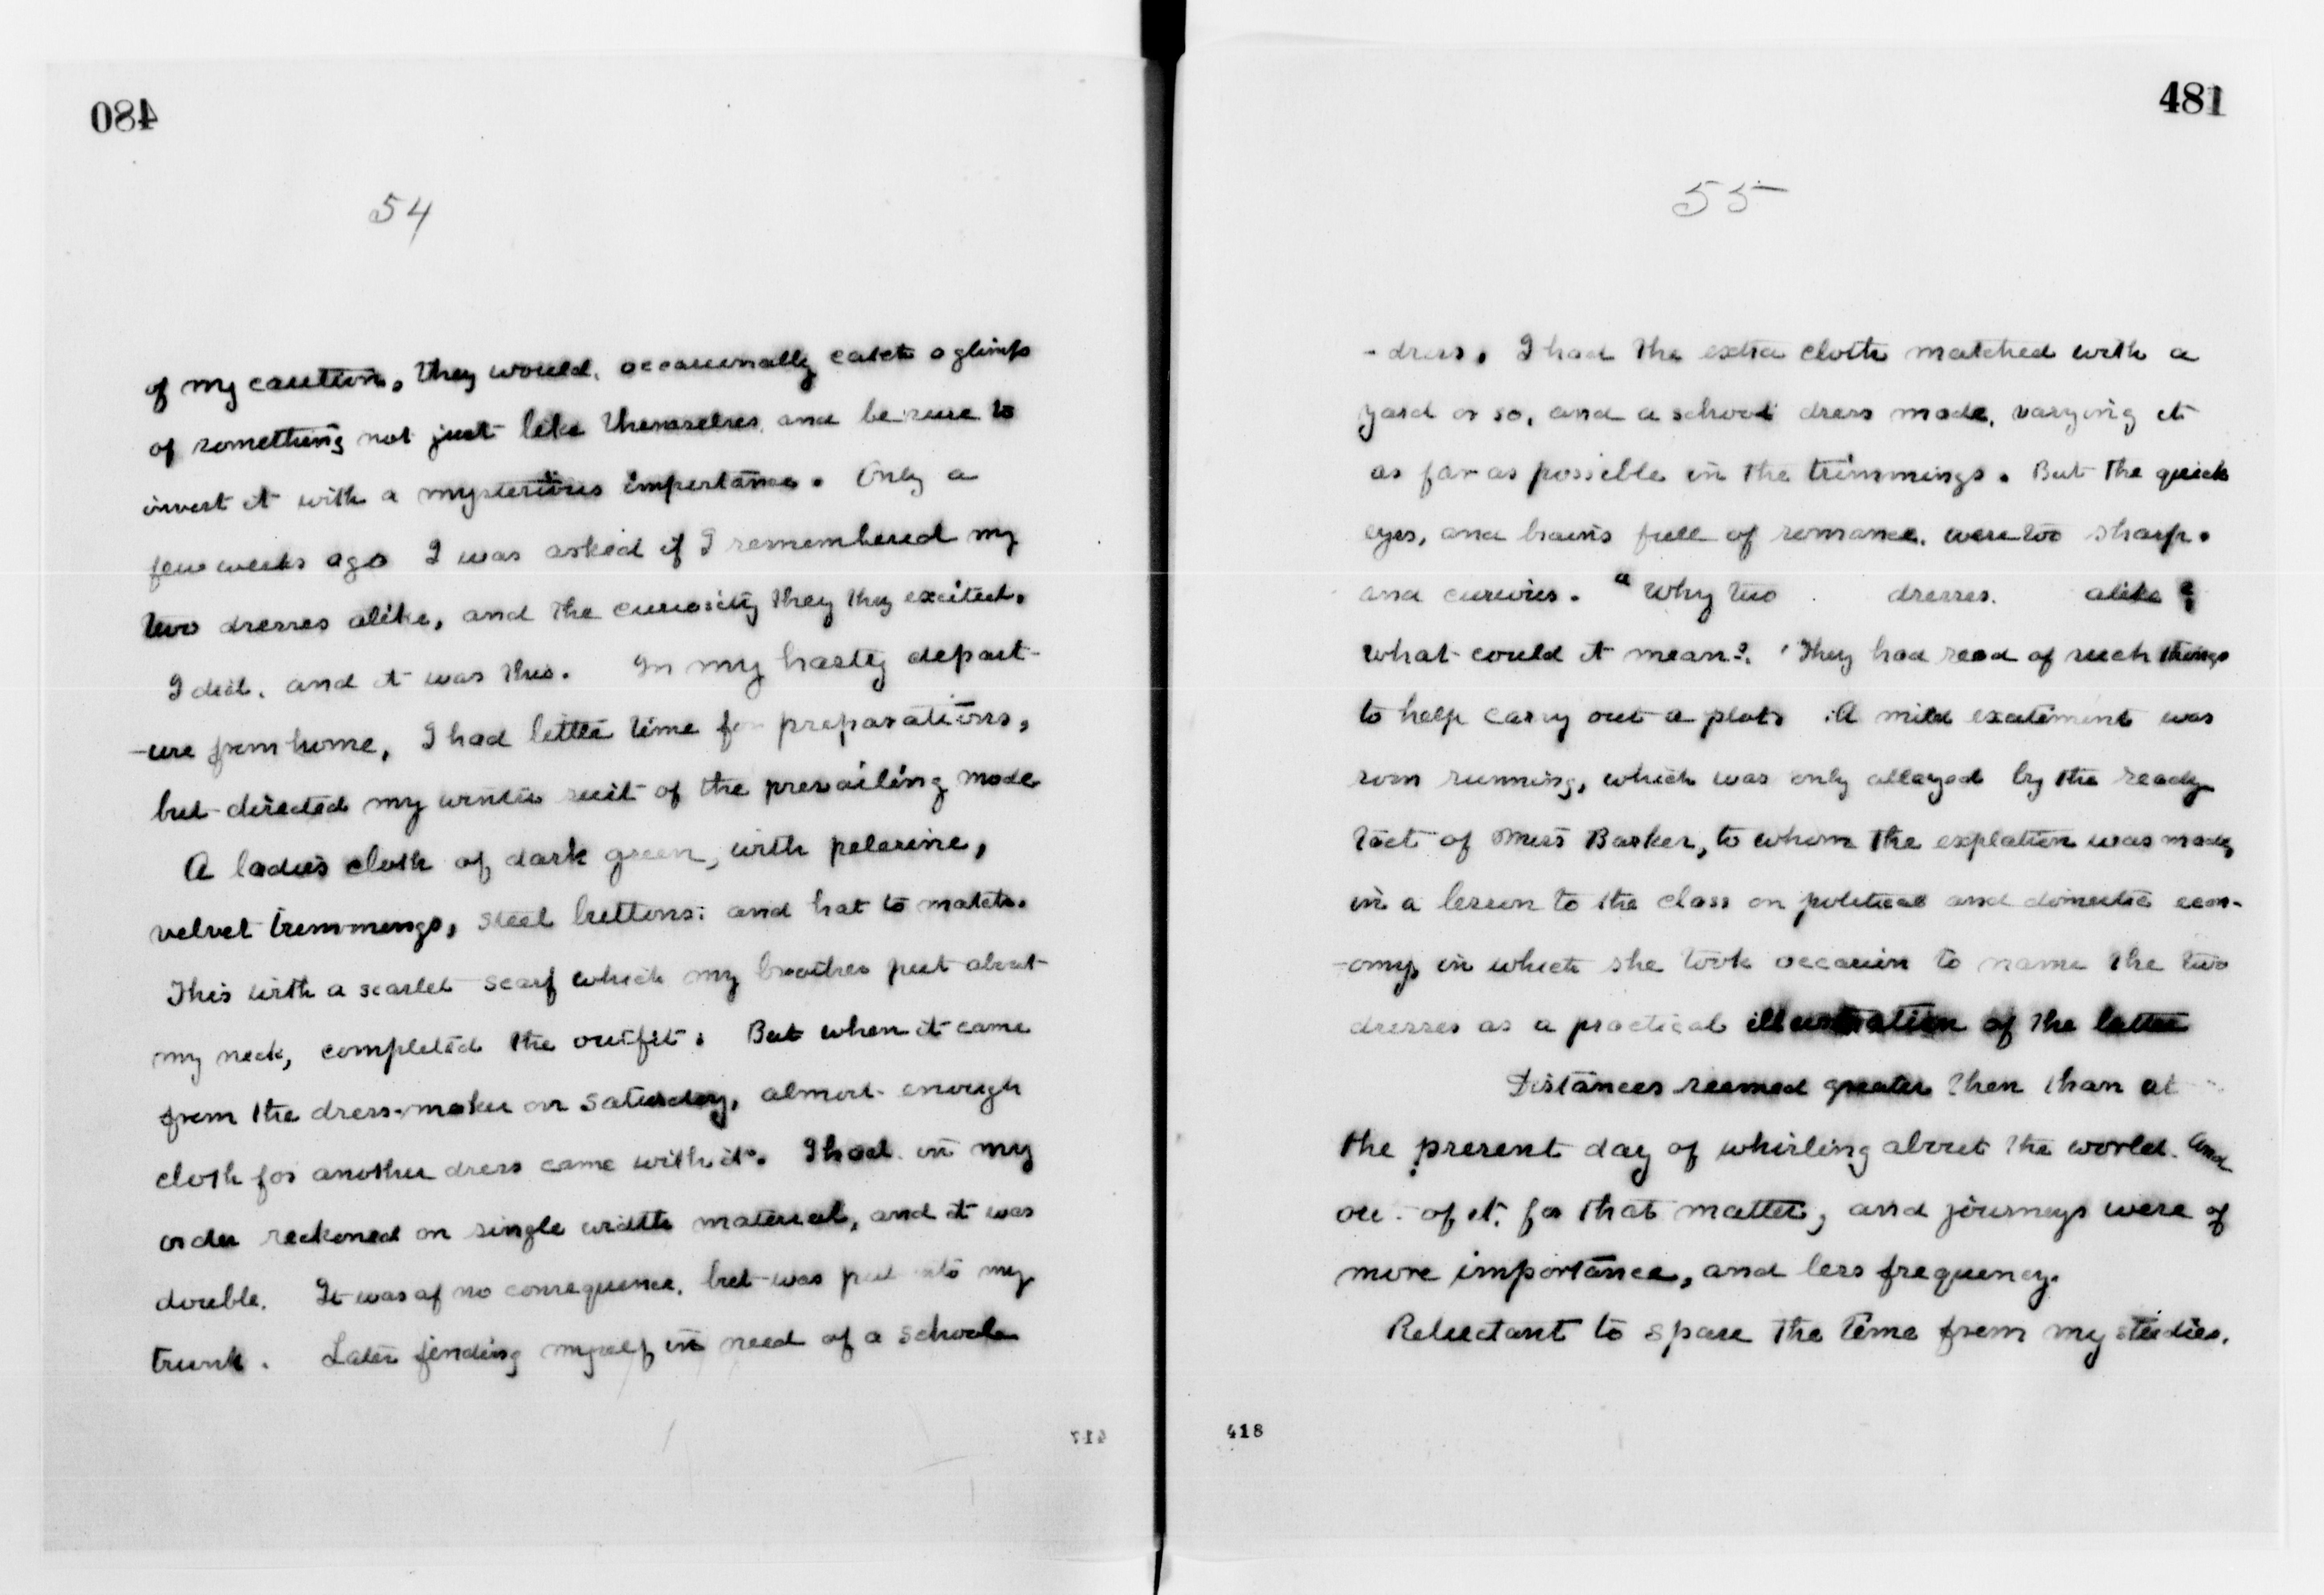 480
54
of my caution, they would, occasionally catch a glimps
of something not just like themselves, and be sure to
invest it with a mysterious importance. Only a
few weeks ago I was asked if I remembered my
two dresses alike, and the curiosity they they excited.
I did, and it was this. In my hasty depart-
-ure from home, I had little time for preparations,
but directed my winter suit of the prevailing mode
A ladies cloth of dark green, with pelerine,
velvet trimmings, steel buttons; and hat to match.
This with a scarlet scarf which my brother put about
my neck, completed the outfit. But when it came
from the dress-maker on Saturday, almost enough
cloth for another dress came with it. I had in my
order reckoned on single width material, and it was
double. It was of no consequence, but was put into my
trunk. Later finding myself in need of a school
417
481
55
-dress. I had the extra cloth matched with a
yard or so, and a school dress made, varying it
as far as possible in the trimmings. But the quick
eyes, and brains full of romance, were too sharp.
and curious. "Why two dresses alike?
what could it mean? They had read of such things
to help carry out a plot. A mild excitement was
soon running, which was only allayed by the ready
tact of Miss Barker, to whom the explation was made,
in a lesson to the class on political and domestic econ-
-omy, in which she took occasion to name the two
dresses as a practical illustration of the latter
Distances seemed greater then than at
the present day of whirling about the world. And
out of it, for that matter, and journeys were of
more importance, and less frequency.
Reluctant to spare the time from my studies,
418